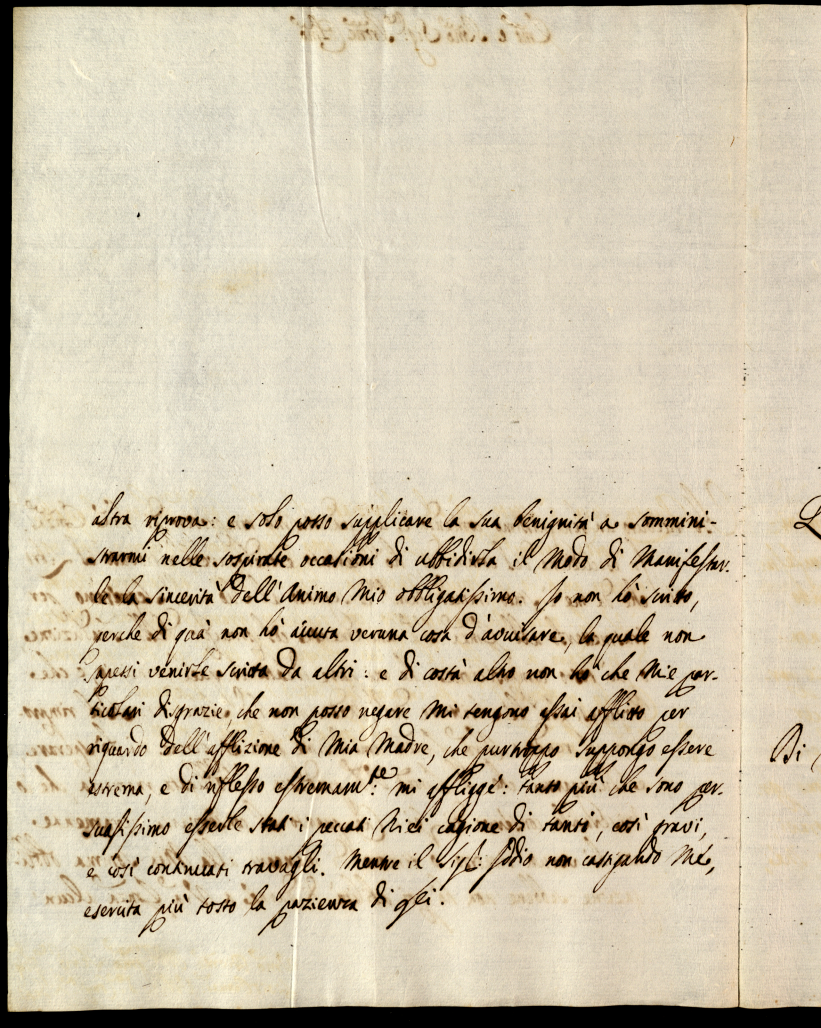 altra riprova: e solo posso supplicare la sua benignità a sommini-
strarmi nelle sospirate occasioni di ubbidirla il modo di manifestar-
le la sincerità dell'Animo Mio obbligatissimo. Io non hò scritto,
perche di quà non hò avuta veruna cosa d'avvisare, la quale non
sapessi venirle scritta da altri: e di costà altro non hò che Mie par-
ticolari disgrazie, che non posso negare mi tengono assai afflitto per
riguardo dell'afflizione di Mia Madre, che purtroppo suppongo essere
estrema, e di riflesso estremam.te: mi affligge: tanto più che sono per-
suasissimo esserle stati i peccati Miei cagione di tanti, così gravi,
e così continuati travagli. Mentre il Sig.: Iddio non castigando Me,
esercita più tosto la pazienza di
Di